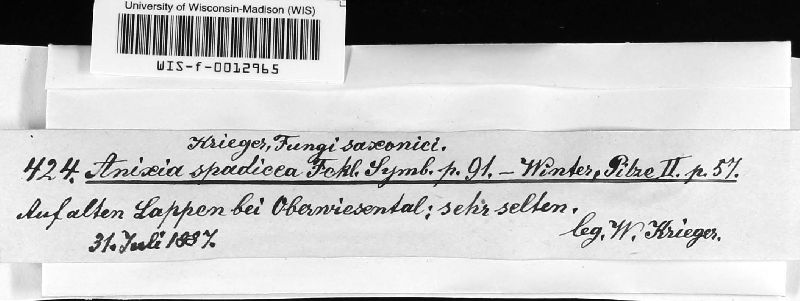 University of Wisconsin-Madison (WIS)
WIS-f-0012965
Krieger, Fungi saxonici.
424. Anixia spadicea Fckl. Symb. p. 91. – Winter, Pilze II. p. 57.
Auf alten Lappen bei Oberwiesental; sehr selten.
31. Juli 1887.
leg. W. Krieger.